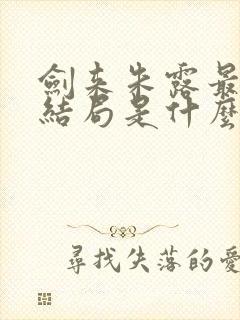 劍来朱露最
結局是什麼
尋找失落的愛